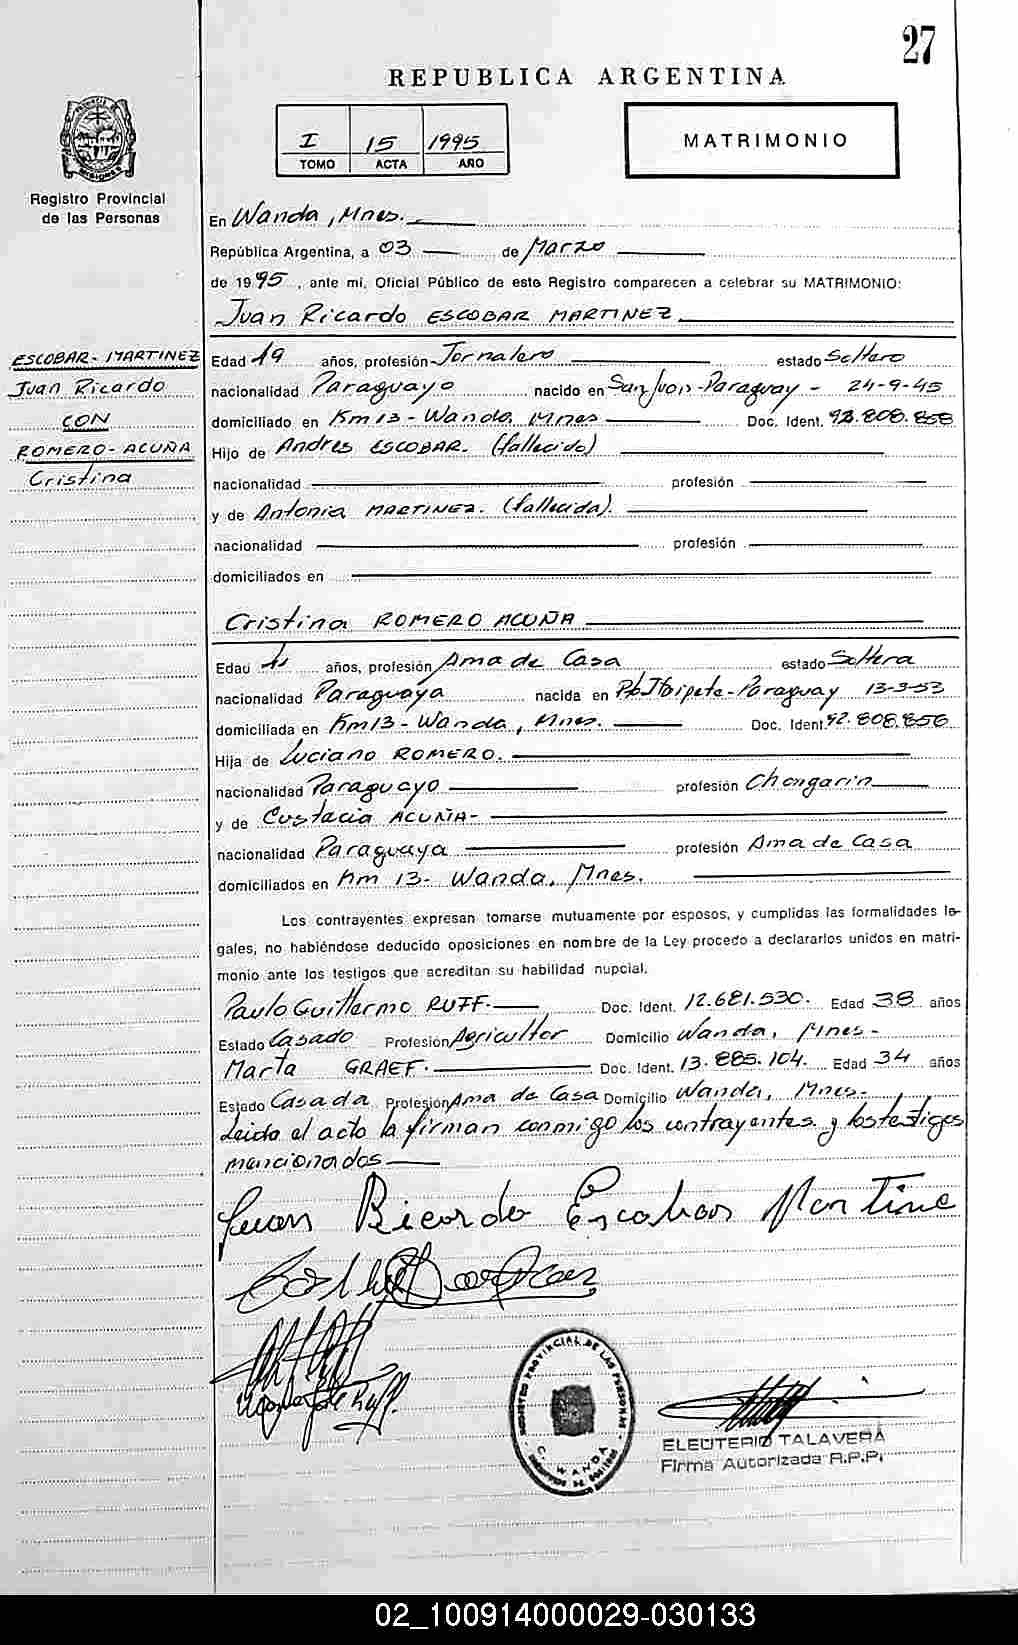 27
REPUBLICA ARGENTINA
I 15 1995
TOMO ACTA AÑO
MATRIMONIO
Registro Provincial
de las Personas
En Wanda, Mnes.
República Argentina, a 03 de Marzo
de 1995, ante mí, Oficial Público de este Registro comparecen a celebrar su MATRIMONIO:
Juan Ricardo ESCOBAR MARTINEZ
ESCOBAR-MARTINEZ
Juan Ricardo
CON
ROMERO-ACUÑA
Cristina
Edad 49 años, profesión Jornalero estado Soltero
nacionalidad Paraguayo nacido en San Juan-Paraguay - 24-9-45
domiciliado en Km 13 - Wanda, Mnes Doc. Ident. 92.808.858
Hijo de Andres ESCOBAR. (fallecido)
nacionalidad profesión
y de Antonia MARTINEZ. (fallecida).
nacionalidad profesión
domiciliados en
Cristina ROMERO ACUÑA
Edad 41 años, profesión Ama de Casa estado Soltera
nacionalidad Paraguaya nacida en -Paraguay 13-3-53
domiciliada en Km 13 - Wanda, Mnes. Doc. Ident. 92.808.856
Hija de Luciano ROMERO.
nacionalidad Paraguayo profesión
y de Eustacia ACUÑA-
nacionalidad Paraguaya profesión Ama de Casa
domiciliados en Km 13- Wanda, Mnes.
Los contrayentes expresan tomarse mutuamente por esposos, y cumplidas las formalidades le-
gales, no habiéndose deducido oposiciones en nombre de la Ley procedo a declararlos unidos en matri-
monio ante los testigos que acreditan su habilidad nupcial.
Paulo Guillermo RUFF.- Doc. Ident. 12.681.530. Edad 38 años
Estado Casado Profesión Agricultor Domicilio Wanda, Mnes-
Marta GRAEF. Doc. Ident. 13.885.104. Edad 34 años
Estado Casada Profesión Ama de Casa Domicilio Wanda, Mnes-
Leida el acto la firman conmigo los contrayentes y los testigos
mencionados
Juan Ricardo Escobar Martine
REGISTRO PROVINCIAL DE LAS PERSONAS
WANDA
ELEUTERIO TALAVERA
Firma Autorizada R.P.P.
02_100914000029-030133